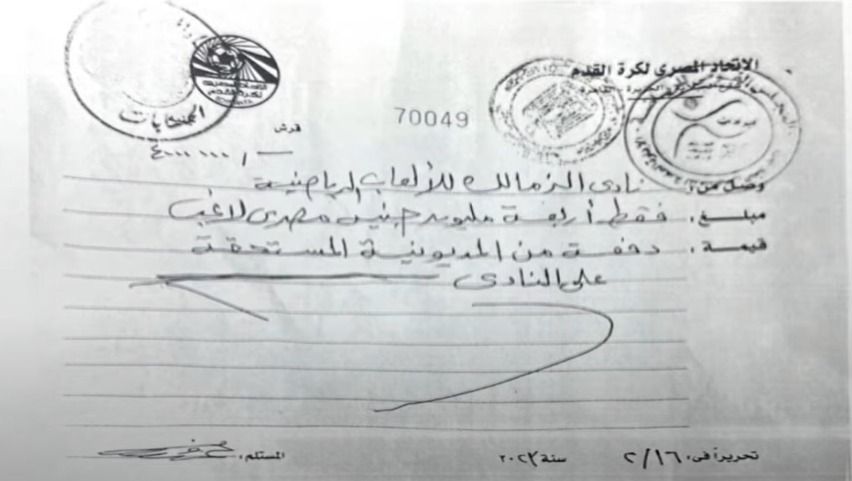 الاتحاد المصرى لكرة القدم
70049
الحسابات
قرش
٤٠٠٠٠٠٠/ـــ
وصل من: نادى الزمالك للألعاب الرياضية
مبلغ، فقط أربعة مليون جنيه مصرى لاغير
قيمة، دفعة من المديونية المستحقة
على النادى
تحريراً فى، ٢/١٦ سنة ٢٠٢٣
المستلم،